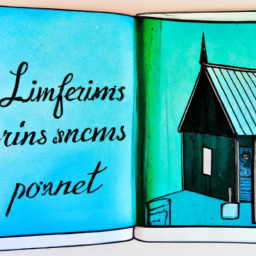 Limferims
rins sncms
poxnet